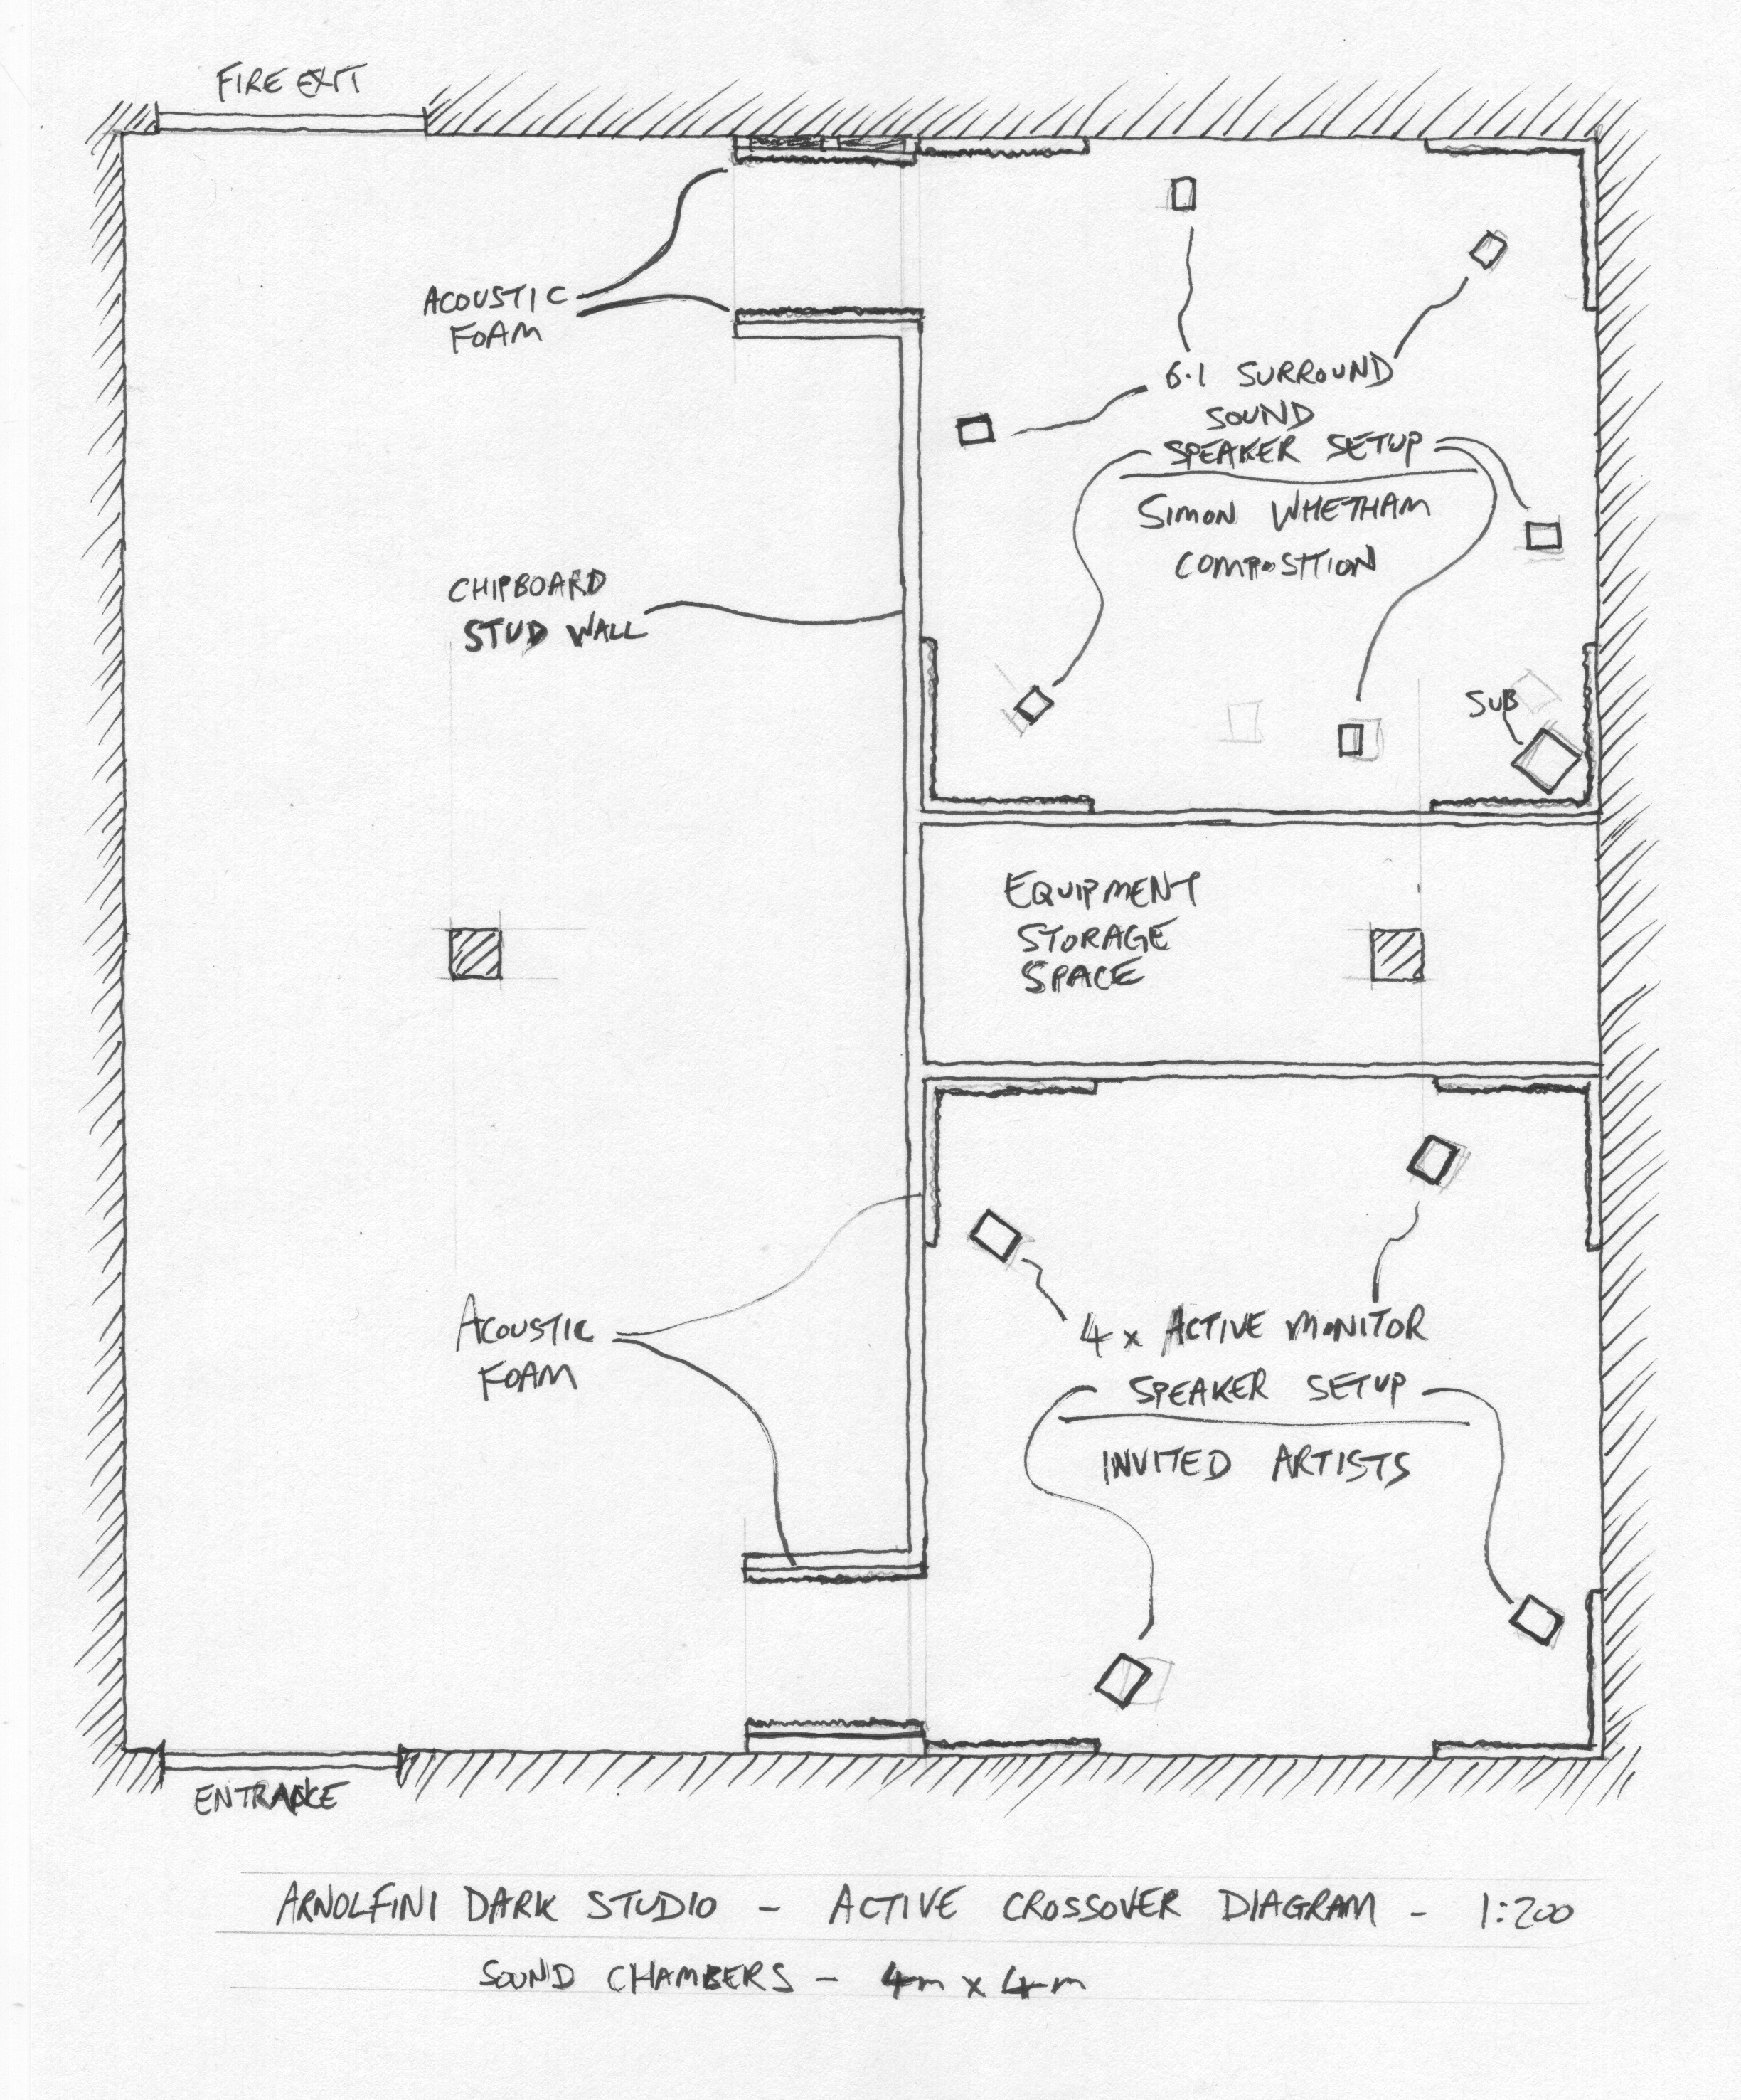 FIRE EXIT
ACOUSTIC
FOAM
6.1 SURROUND
SOUND
SPEAKER SETUP
SIMON WHETHAM
COMPOSITION
CHIPBOARD
STUD WALL
SUB
EQUIPMENT
STORAGE
SPACE
ACOUSTIC
FOAM
4 x ACTIVE MONITOR
SPEAKER SETUP
INVITED ARTISTS
ENTRANCE
ARNOLFINI DARK STUDIO - ACTIVE CROSSOVER DIAGRAM - 1:200
SOUND CHAMBERS - 4m x 4m